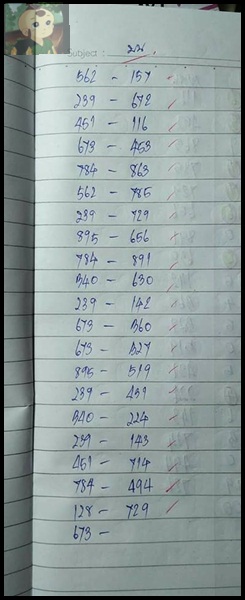 Subject : มน.
362 - 157
239 - 672
451 - 116
673 - 453
784 - 863
562 - 785
239 - 729
895 - 656
784 - 891
340 - 630
239 - 142
673 - 360
673 - 327
895 - 519
239 - 431
340 - 224
239 - 143
451 - 714
784 - 494
128 - 729
673 -